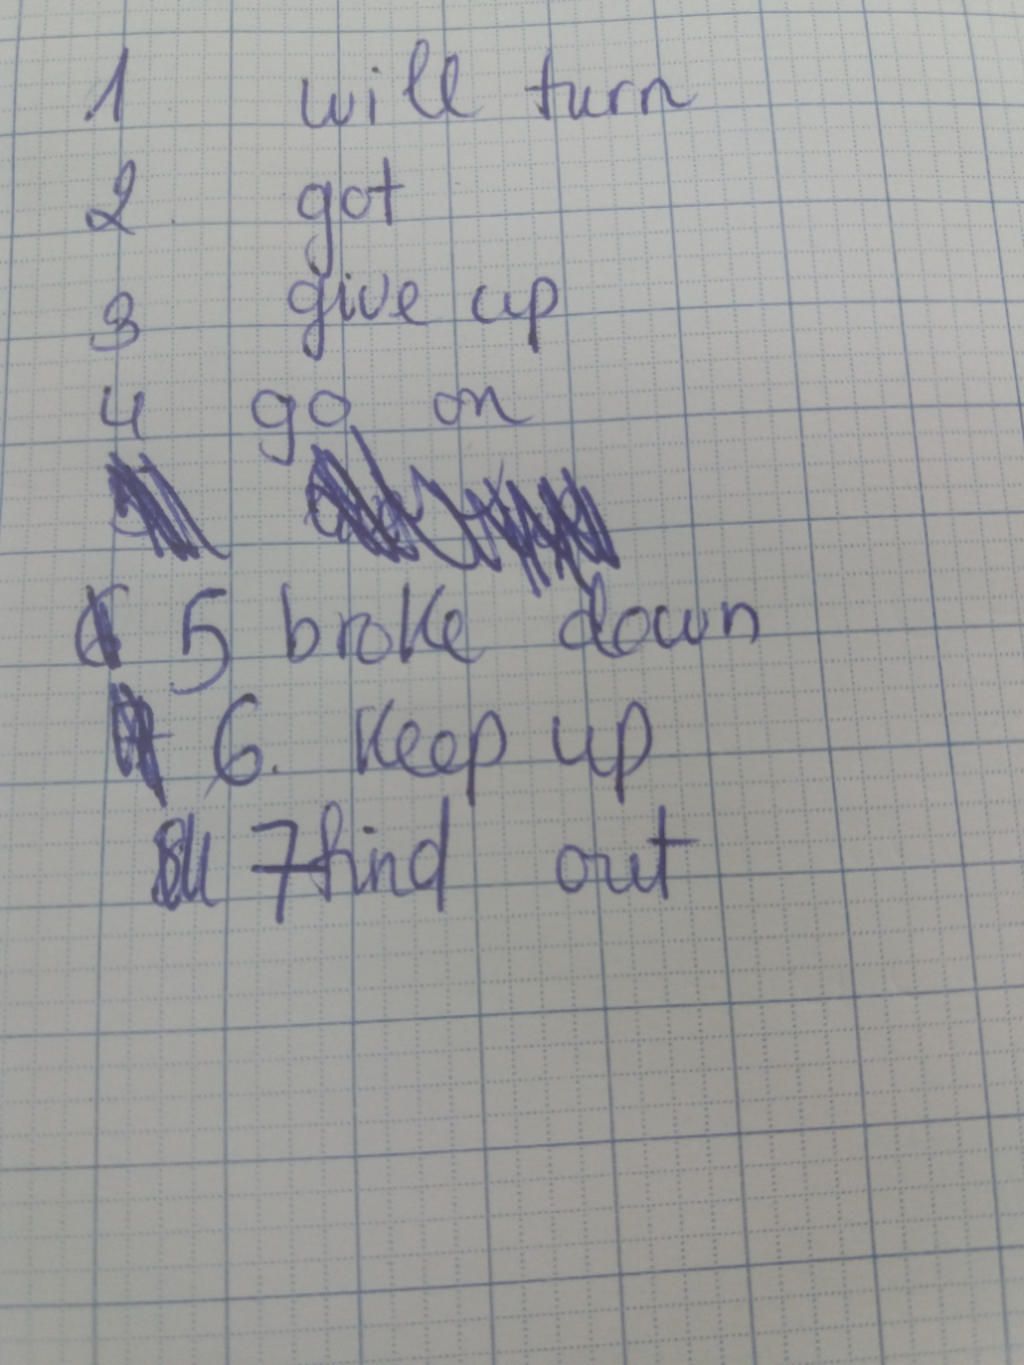 1 will turn
2. got
3 give up
4 go on
5 broke down
6. keep up
7 find out